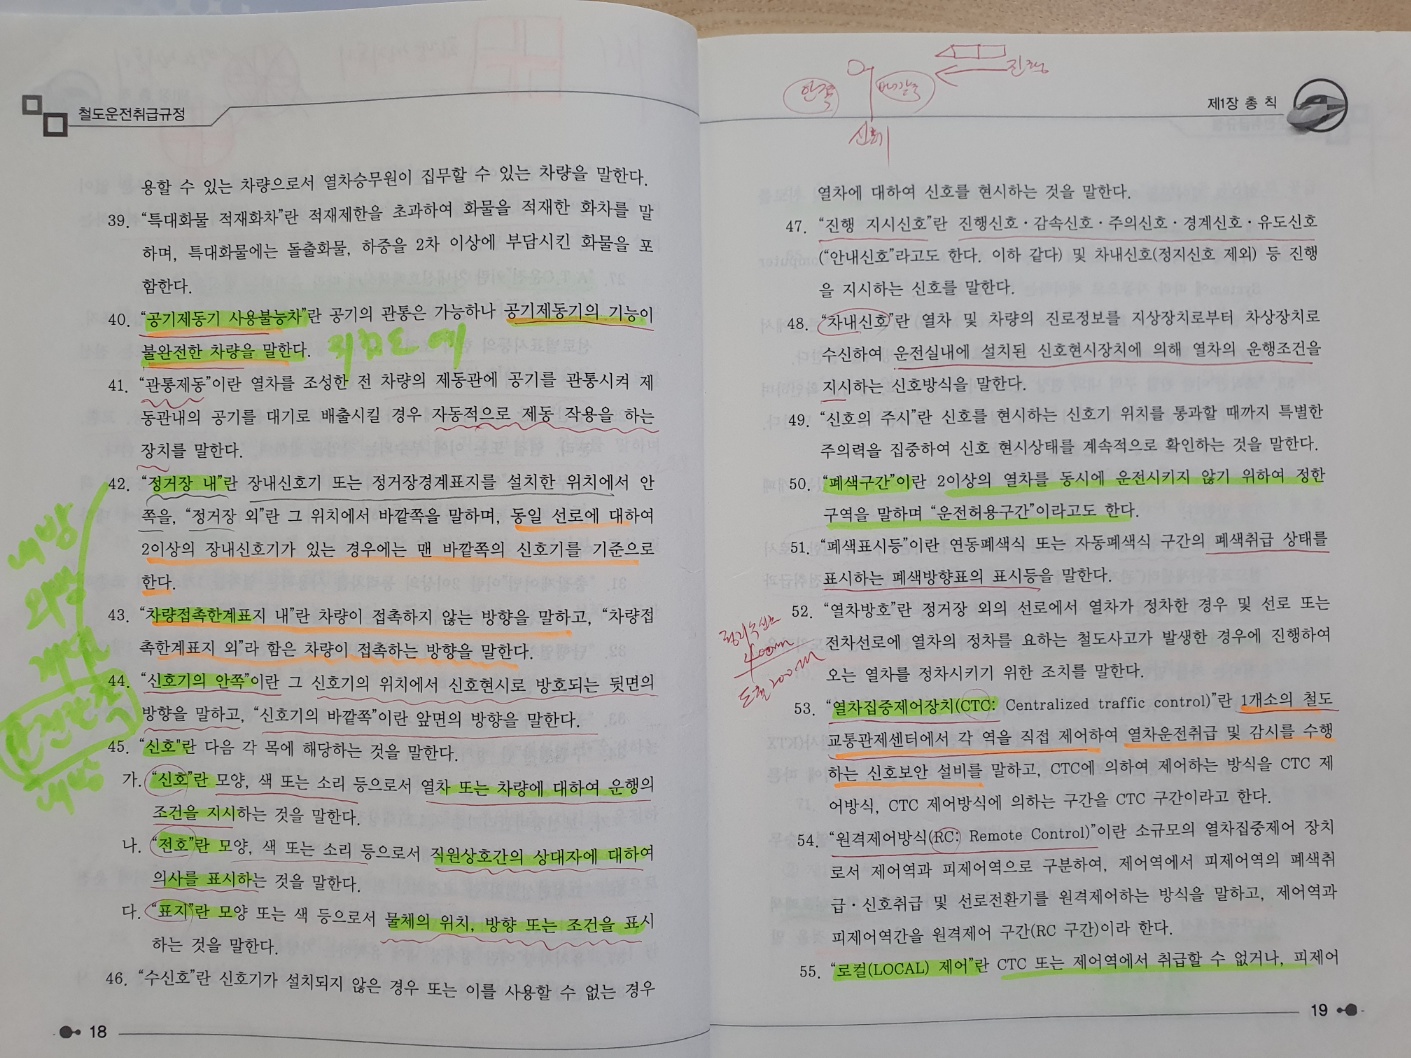 철도운전취급규정
용할 수 있는 차량으로서 열차승무원이 집무할 수 있는 차량을 말한다.
39. “특대화물 적재화차”란 적재제한을 초과하여 화물을 적재한 화차를 말
하며, 특대화물에는 돌출화물, 하중을 2차 이상에 부담시킨 화물을 포
함한다.
40. “공기제동기 사용불능차”란 공기의 관통은 가능하나 공기제동기의 기능이
불완전한 차량을 말한다.
41. “관통제동”이란 열차를 조성한 전 차량의 제동관에 공기를 관통시켜 제
동관내의 공기를 대기로 배출시킬 경우 자동적으로 제동 작용을 하는
장치를 말한다.
42. “정거장 내”란 장내신호기 또는 정거장경계표지를 설치한 위치에서 안
쪽을, “정거장 외”란 그 위치에서 바깥쪽을 말하며, 동일 선로에 대하여
2이상의 장내신호기가 있는 경우에는 맨 바깥쪽의 신호기를 기준으로
한다.
43. “차량접촉한계표지 내”란 차량이 접촉하지 않는 방향을 말하고, “차량접
촉한계표지 외”라 함은 차량이 접촉하는 방향을 말한다.
44. “신호기의 안쪽”이란 그 신호기의 위치에서 신호현시로 방호되는 뒷면의
방향을 말하고, “신호기의 바깥쪽”이란 앞면의 방향을 말한다.
45. “신호”란 다음 각 목에 해당하는 것을 말한다.
가. “신호”란 모양, 색 또는 소리 등으로서 열차 또는 차량에 대하여 운행의
조건을 지시하는 것을 말한다.
나. “전호”란 모양, 색 또는 소리 등으로서 직원상호간의 상대자에 대하여
의사를 표시하는 것을 말한다.
다. “표지”란 모양 또는 색 등으로서 물체의 위치, 방향 또는 조건을 표시
하는 것을 말한다.
46. “수신호”란 신호기가 설치되지 않은 경우 또는 이를 사용할 수 없는 경우
18
내방
외방
안쪽
신호기
진행
제1장 총 칙
열차에 대하여 신호를 현시하는 것을 말한다.
47. “진행 지시신호”란 진행신호·감속신호·주의신호·경계신호·유도신호
(“안내신호”라고도 한다. 이하 같다) 및 차내신호(정지신호 제외) 등 진행
을 지시하는 신호를 말한다.
48. “차내신호”란 열차 및 차량의 진로정보를 지상장치로부터 차상장치로
수신하여 운전실내에 설치된 신호현시장치에 의해 열차의 운행조건을
지시하는 신호방식을 말한다.
49. “신호의 주시”란 신호를 현시하는 신호기 위치를 통과할 때까지 특별한
주의력을 집중하여 신호 현시상태를 계속적으로 확인하는 것을 말한다.
50. “폐색구간”이란 2이상의 열차를 동시에 운전시키지 않기 위하여 정한
구역을 말하며 “운전허용구간”이라고도 한다.
51. “폐색표시등”이란 연동폐색식 또는 자동폐색식 구간의 폐색취급 상태를
표시하는 폐색방향표의 표시등을 말한다.
52. “열차방호”란 정거장 외의 선로에서 열차가 정차한 경우 및 선로 또는
전차선로에 열차의 정차를 요하는 철도사고가 발생한 경우에 진행하여
오는 열차를 정차시키기 위한 조치를 말한다.
400m
200m
53. “열차집중제어장치(CTC: Centralized traffic control)”란 1개소의 철도
교통관제센터에서 각 역을 직접 제어하여 열차운전취급 및 감시를 수행
하는 신호보안 설비를 말하고, CTC에 의하여 제어하는 방식을 CTC 제
어방식, CTC 제어방식에 의하는 구간을 CTC 구간이라고 한다.
54. “원격제어방식(RC: Remote Control)”이란 소규모의 열차집중제어 장치
로서 제어역과 피제어역으로 구분하여, 제어역에서 피제어역의 폐색취
급·신호취급 및 선로전환기를 원격제어하는 방식을 말하고, 제어역과
피제어역간을 원격제어 구간(RC 구간)이라 한다.
55. “로컬(LOCAL) 제어”란 CTC 또는 제어역에서 취급할 수 없거나, 피제어
19